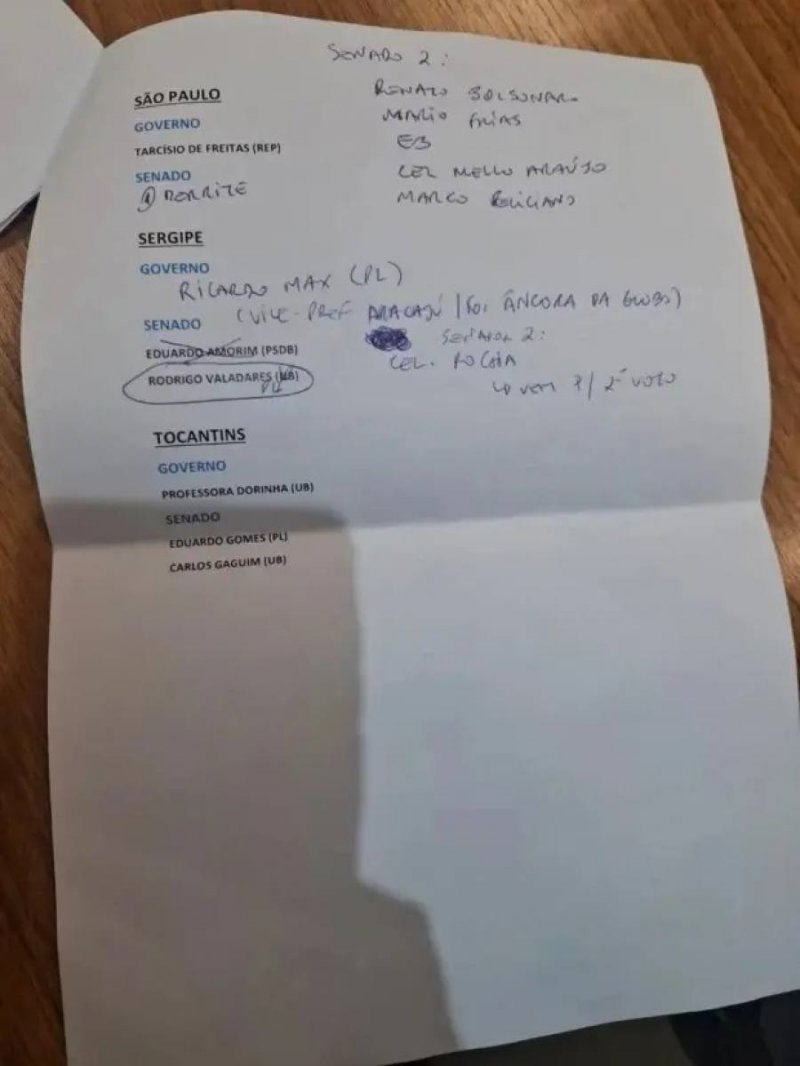 SENADO 2:
SÃO PAULO
RENATO BOLSONARO
GOVERNO
MARIO FRIAS
TARCÍSIO DE FREITAS (REP)
EB
SENADO
CEL MELLO ARAÚJO
① DERRITE
MARCO FELICIANO
SERGIPE
GOVERNO
RICARDO MAX (PL)
(VICE-PREF ARACAJÚ / FOI ÂNCORA DA GLOBO)
SENADO
SENADOR 2:
EDUARDO AMORIM (PSDB)
CEL. ROCHA
RODRIGO VALADARES (UB)
PL
VEM P/ 2º VOTO
TOCANTINS
GOVERNO
PROFESSORA DORINHA (UB)
SENADO
EDUARDO GOMES (PL)
CARLOS GAGUIM (UB)